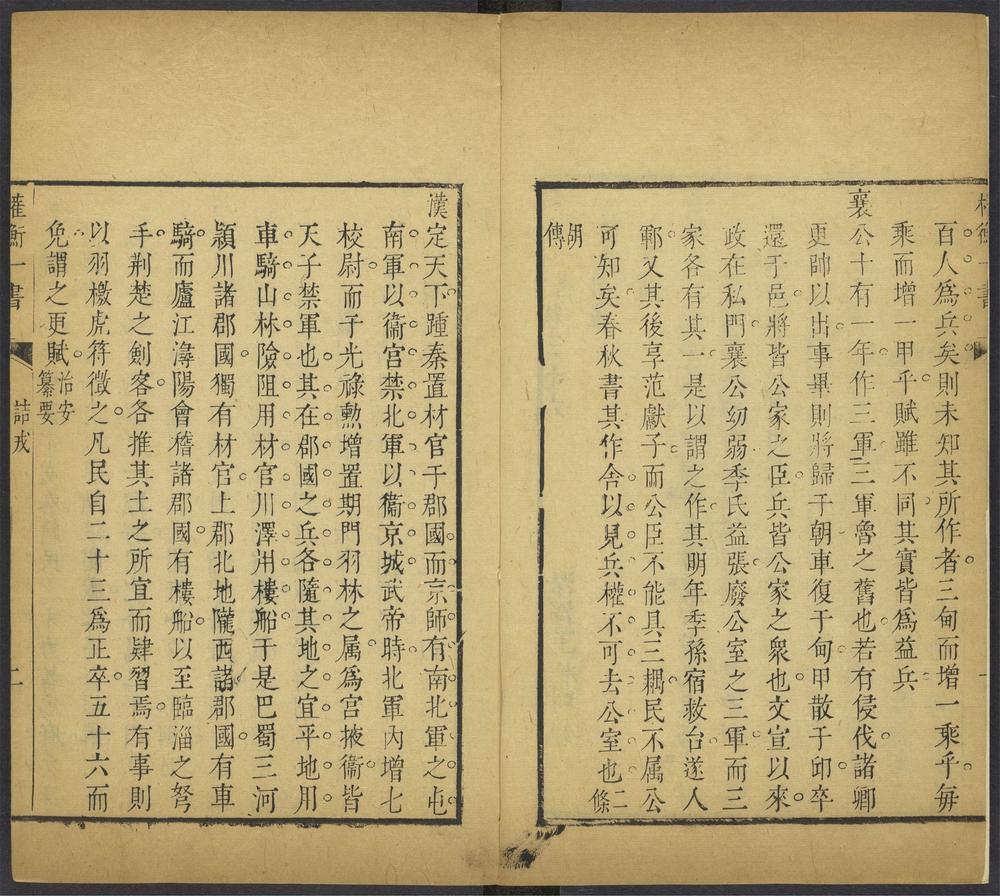 百人為兵矣則未知其所作者三甸而增一乘乎每
乘而增一甲乎賦雖不同其實皆為益兵
襄公十有一年作三軍三軍魯之舊也若有侵伐諸卿
更帥以出事畢則將歸于朝車復于甸甲散于邱卒
還于邑將皆公家之臣兵皆公家之衆也文宣以來
政在私門襄公幼弱季氏益張廢公室之三軍而三
家各有其一是以謂之作其明年季孫宿救台遂入
鄆又其後享范獻子而公臣不能具三耦民不属公
可知矣春秋書其作舍以見兵權不可去公室也二條
胡傳
漢定天下踵秦置材官于郡國而京師有南北軍之屯
南軍以衞宮禁北軍以衞京城武帝時北軍內增七
校尉而于光祿勲增置期門羽林之属為宮掖衞皆
天子禁軍也其在郡國之兵各隨其地之宜平地用
車騎山林險阻用材官川澤用樓船于是巴蜀三河
潁川諸郡國獨有材官上郡北地隴西諸郡國有車
騎而廬江潯陽會稽諸郡國有樓船以至臨淄之弩
手荆楚之劍客各推其土之所宜而肄習焉有事則
以羽檄虎符徵之凡民自二十三為正卒五十六而
免謂之更賦治安纂要
權衡一書
詰戎
二